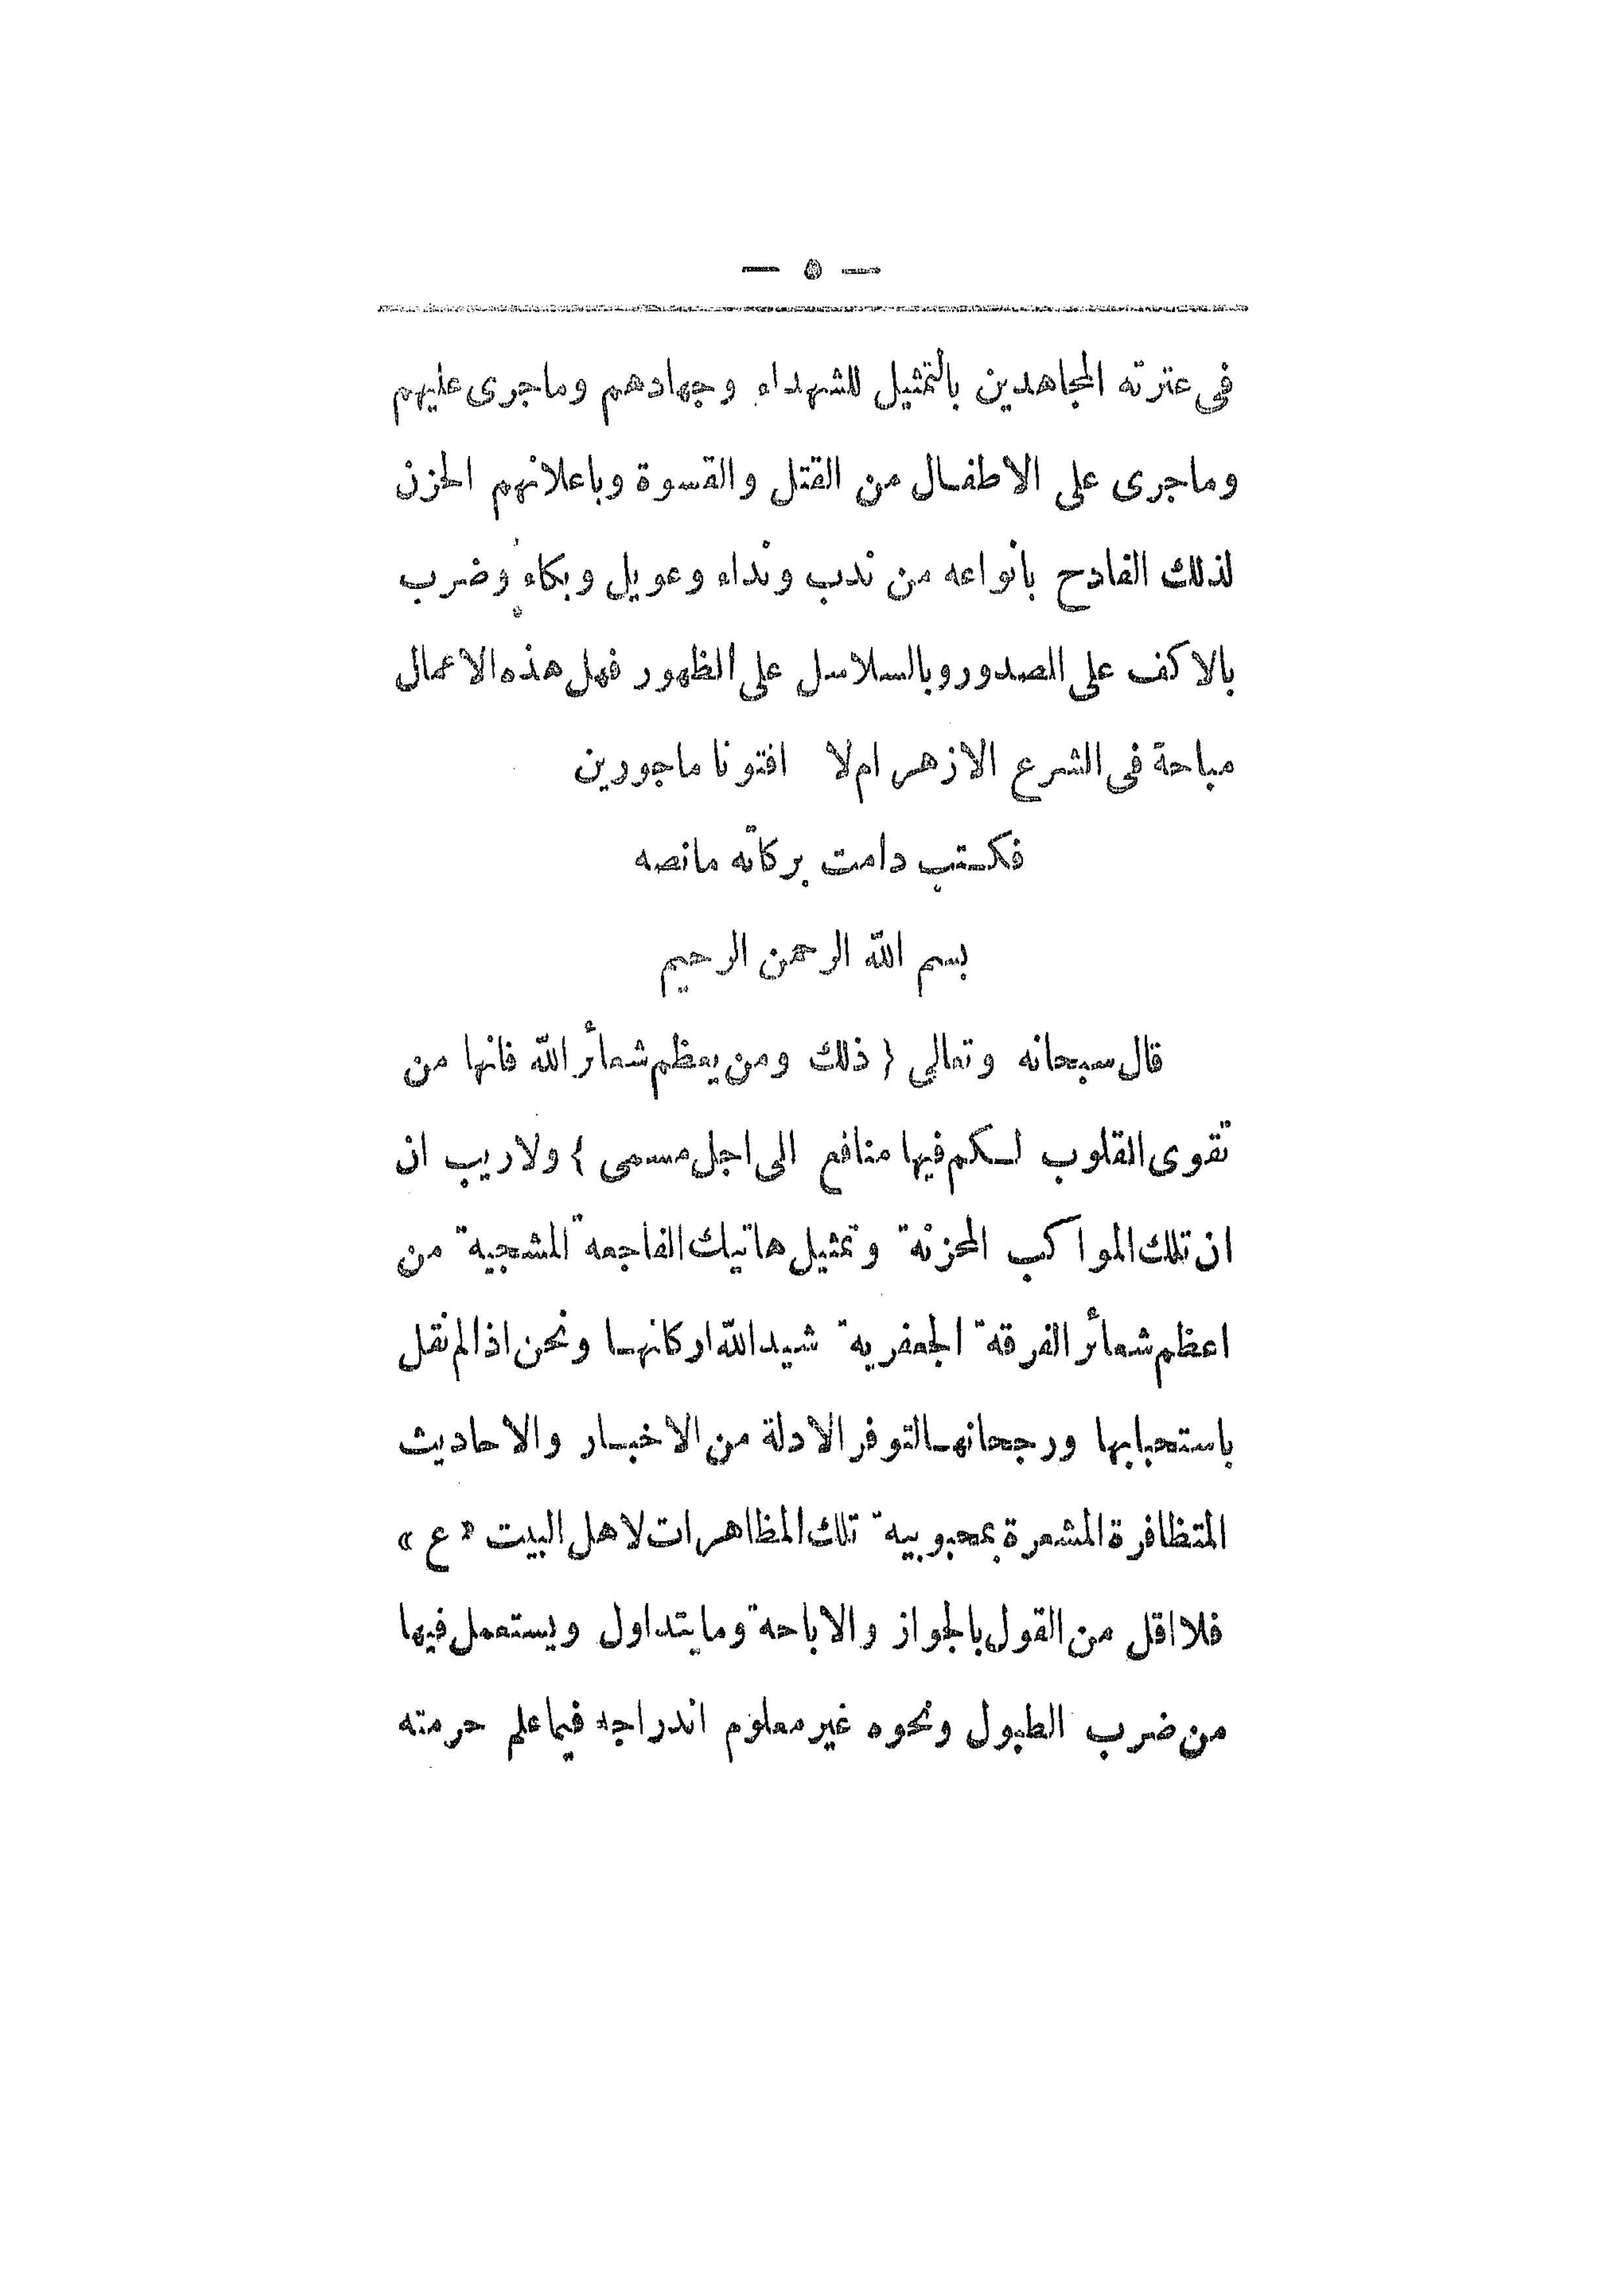 — ٥ —
في عترته المجاهدين بالتمثيل للشهداء وجهادهم وماجرى عليهم
وماجرى على الاطفال من القتل والقسوة وباعلانهم الحزن
لذلك الفادح بانواعه من ندب ونداء وعويل وبكاء وضرب
بالاكف على الصدور وبالسلاسل على الظهور فهل هذه الاعمال
مباحة في الشرع الازهر ام لا افتونا ماجورين
فكتب دامت بركاته مانصه
بسم الله الرحمن الرحيم
قال سبحانه وتعالى { ذلك ومن يعظم شعائر الله فانها من
تقوى القلوب لكم فيها منافع الى اجل مسمى } ولا ريب ان
ان تلك المواكب المحزنة وتمثيل هاتيك الفاجعة المشجية من
اعظم شعائر الفرقة الجعفرية شيد الله اركانها ونحن اذا لم نقل
باستحبابها ورجحانها لتوفر الادلة من الاخبار والاحاديث
المتظافرة المشعرة بمحبوبية تلك المظاهرات لاهل البيت «ع»
فلا اقل من القول بالجواز والاباحة وما يتداول ويستعمل فيها
من ضرب الطبول ونحوه غير معلوم اندراجه فيما علم حرمته